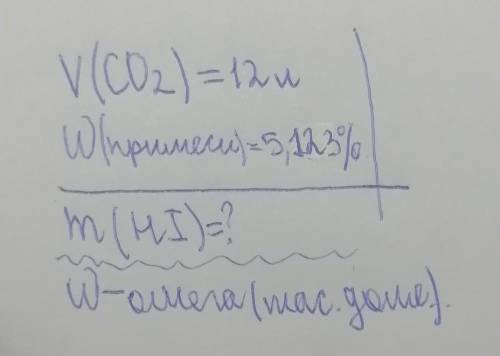 V(CO2) = 12 л
W(примеси) = 5,123%
m(HI) = ?
W - омега (мас. доля).